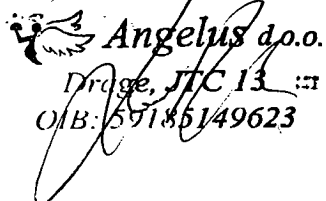 Angelus d.o.o.
Drage, JTC 13
OIB: 59185149623